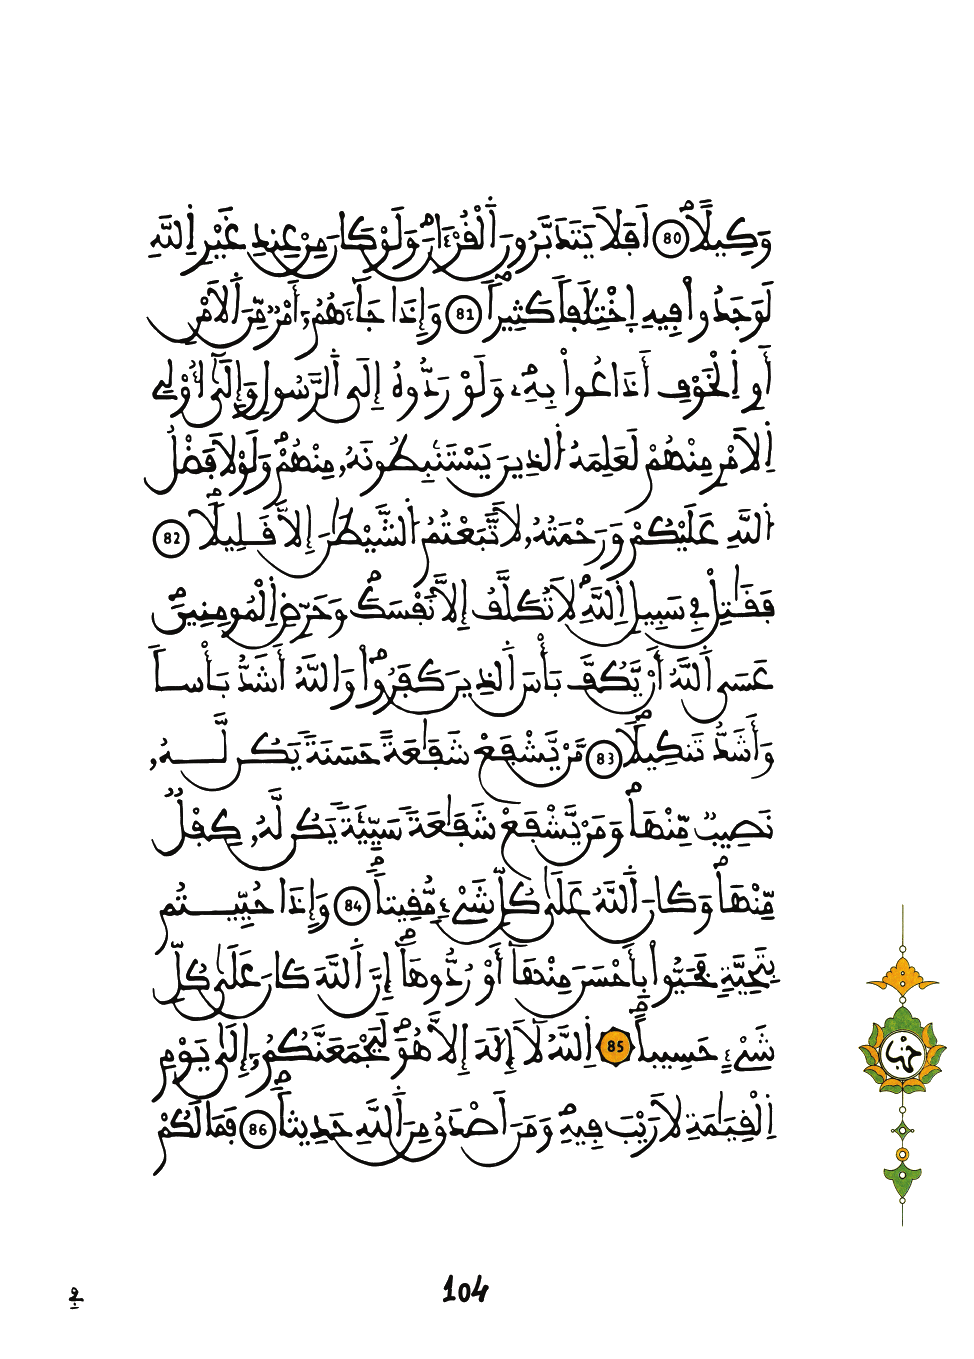 وَكِيلًاۖ 80 أَفَلَا يَتَدَبَّرُونَ اَ۬لْقُرْءَانَۖ وَلَوْ كَانَ مِنْ عِندِ غَيْرِ اِ۬للَّهِ
لَوَجَدُواْ فِيهِ اِ۪خْتِلَٰفاٗ كَثِيراٗۖ 81 وَإِذَا جَآءَهُمُۥٓ أَمْرٞ مِّنَ اَ۬لَامْنِ
أَوِ اِ۬لْخَوْفِ أَذَاعُواْ بِهِۦۖ وَلَوْ رَدُّوهُ إِلَى اَ۬لرَّسُولِ وَإِلَىٰٓ أُوْلِے
اِ۬لَامْرِ مِنْهُمْ لَعَلِمَهُ اُ۬لذِينَ يَسْتَنۢبِطُونَهُۥ مِنْهُمْۖ وَلَوْلَا فَضْلُ
اُ۬للَّهِ عَلَيْكُمْ وَرَحْمَتُهُۥ لَاتَّبَعْتُمُ اُ۬لشَّيْطَٰنَ إِلَّا قَلِيلاٗۖ 82
فَقَٰتِلْ فِے سَبِيلِ اِ۬للَّهِۖ لَا تُكَلَّفُ إِلَّا نَفْسَكَۖ وَحَرِّضِ اِ۬لْمُومِنِينَۖ
عَسَى اَ۬للَّهُ أَنْ يَّكُفَّ بَأْسَ اَ۬لذِينَ كَفَرُواْۖ وَاللَّهُ أَشَدُّ بَأْساٗ
وَأَشَدُّ تَنكِيلاٗۖ 83 مَّنْ يَّشْفَعْ شَفَٰعَةً حَسَنَةٗ يَكُن لَّهُۥ
نَصِيبٞ مِّنْهَاۖ وَمَنْ يَّشْفَعْ شَفَٰعَةٗ سَيِّئَةٗ يَكُن لَّهُۥ كِفْلٞ
مِّنْهَاۖ وَكَانَ اَ۬للَّهُ عَلَىٰ كُلِّ شَےْءٖ مُّقِيتاٗۖ 84 وَإِذَا حُيِّيتُم
بِتَحِيَّةٖ فَحَيُّواْ بِأَحْسَنَ مِنْهَآ أَوْ رُدُّوهَآۖ إِنَّ اَ۬للَّهَ كَانَ عَلَىٰ كُلِّ
شَےْءٍ حَسِيباًۖ 85 اَ۬للَّهُ لَآ إِلَٰهَ إِلَّا هُوَۖ لَيَجْمَعَنَّكُمُۥٓ إِلَىٰ يَوْمِ
اِ۬لْقِيَٰمَةِ لَا رَيْبَ فِيهِۖ وَمَنَ اَصْدَقُ مِنَ اَ۬للَّهِ حَدِيثاٗۖ 86 فَمَا لَكُمْ
حزب
104